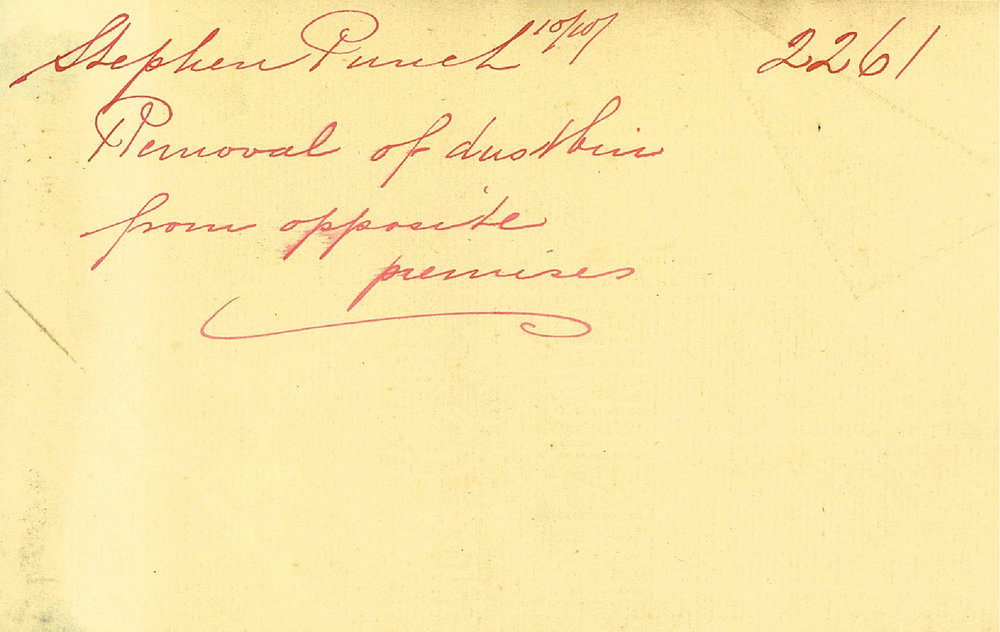 Stephen Punch 10/10/ 2261
Removal of dustbin
from opposite
premises